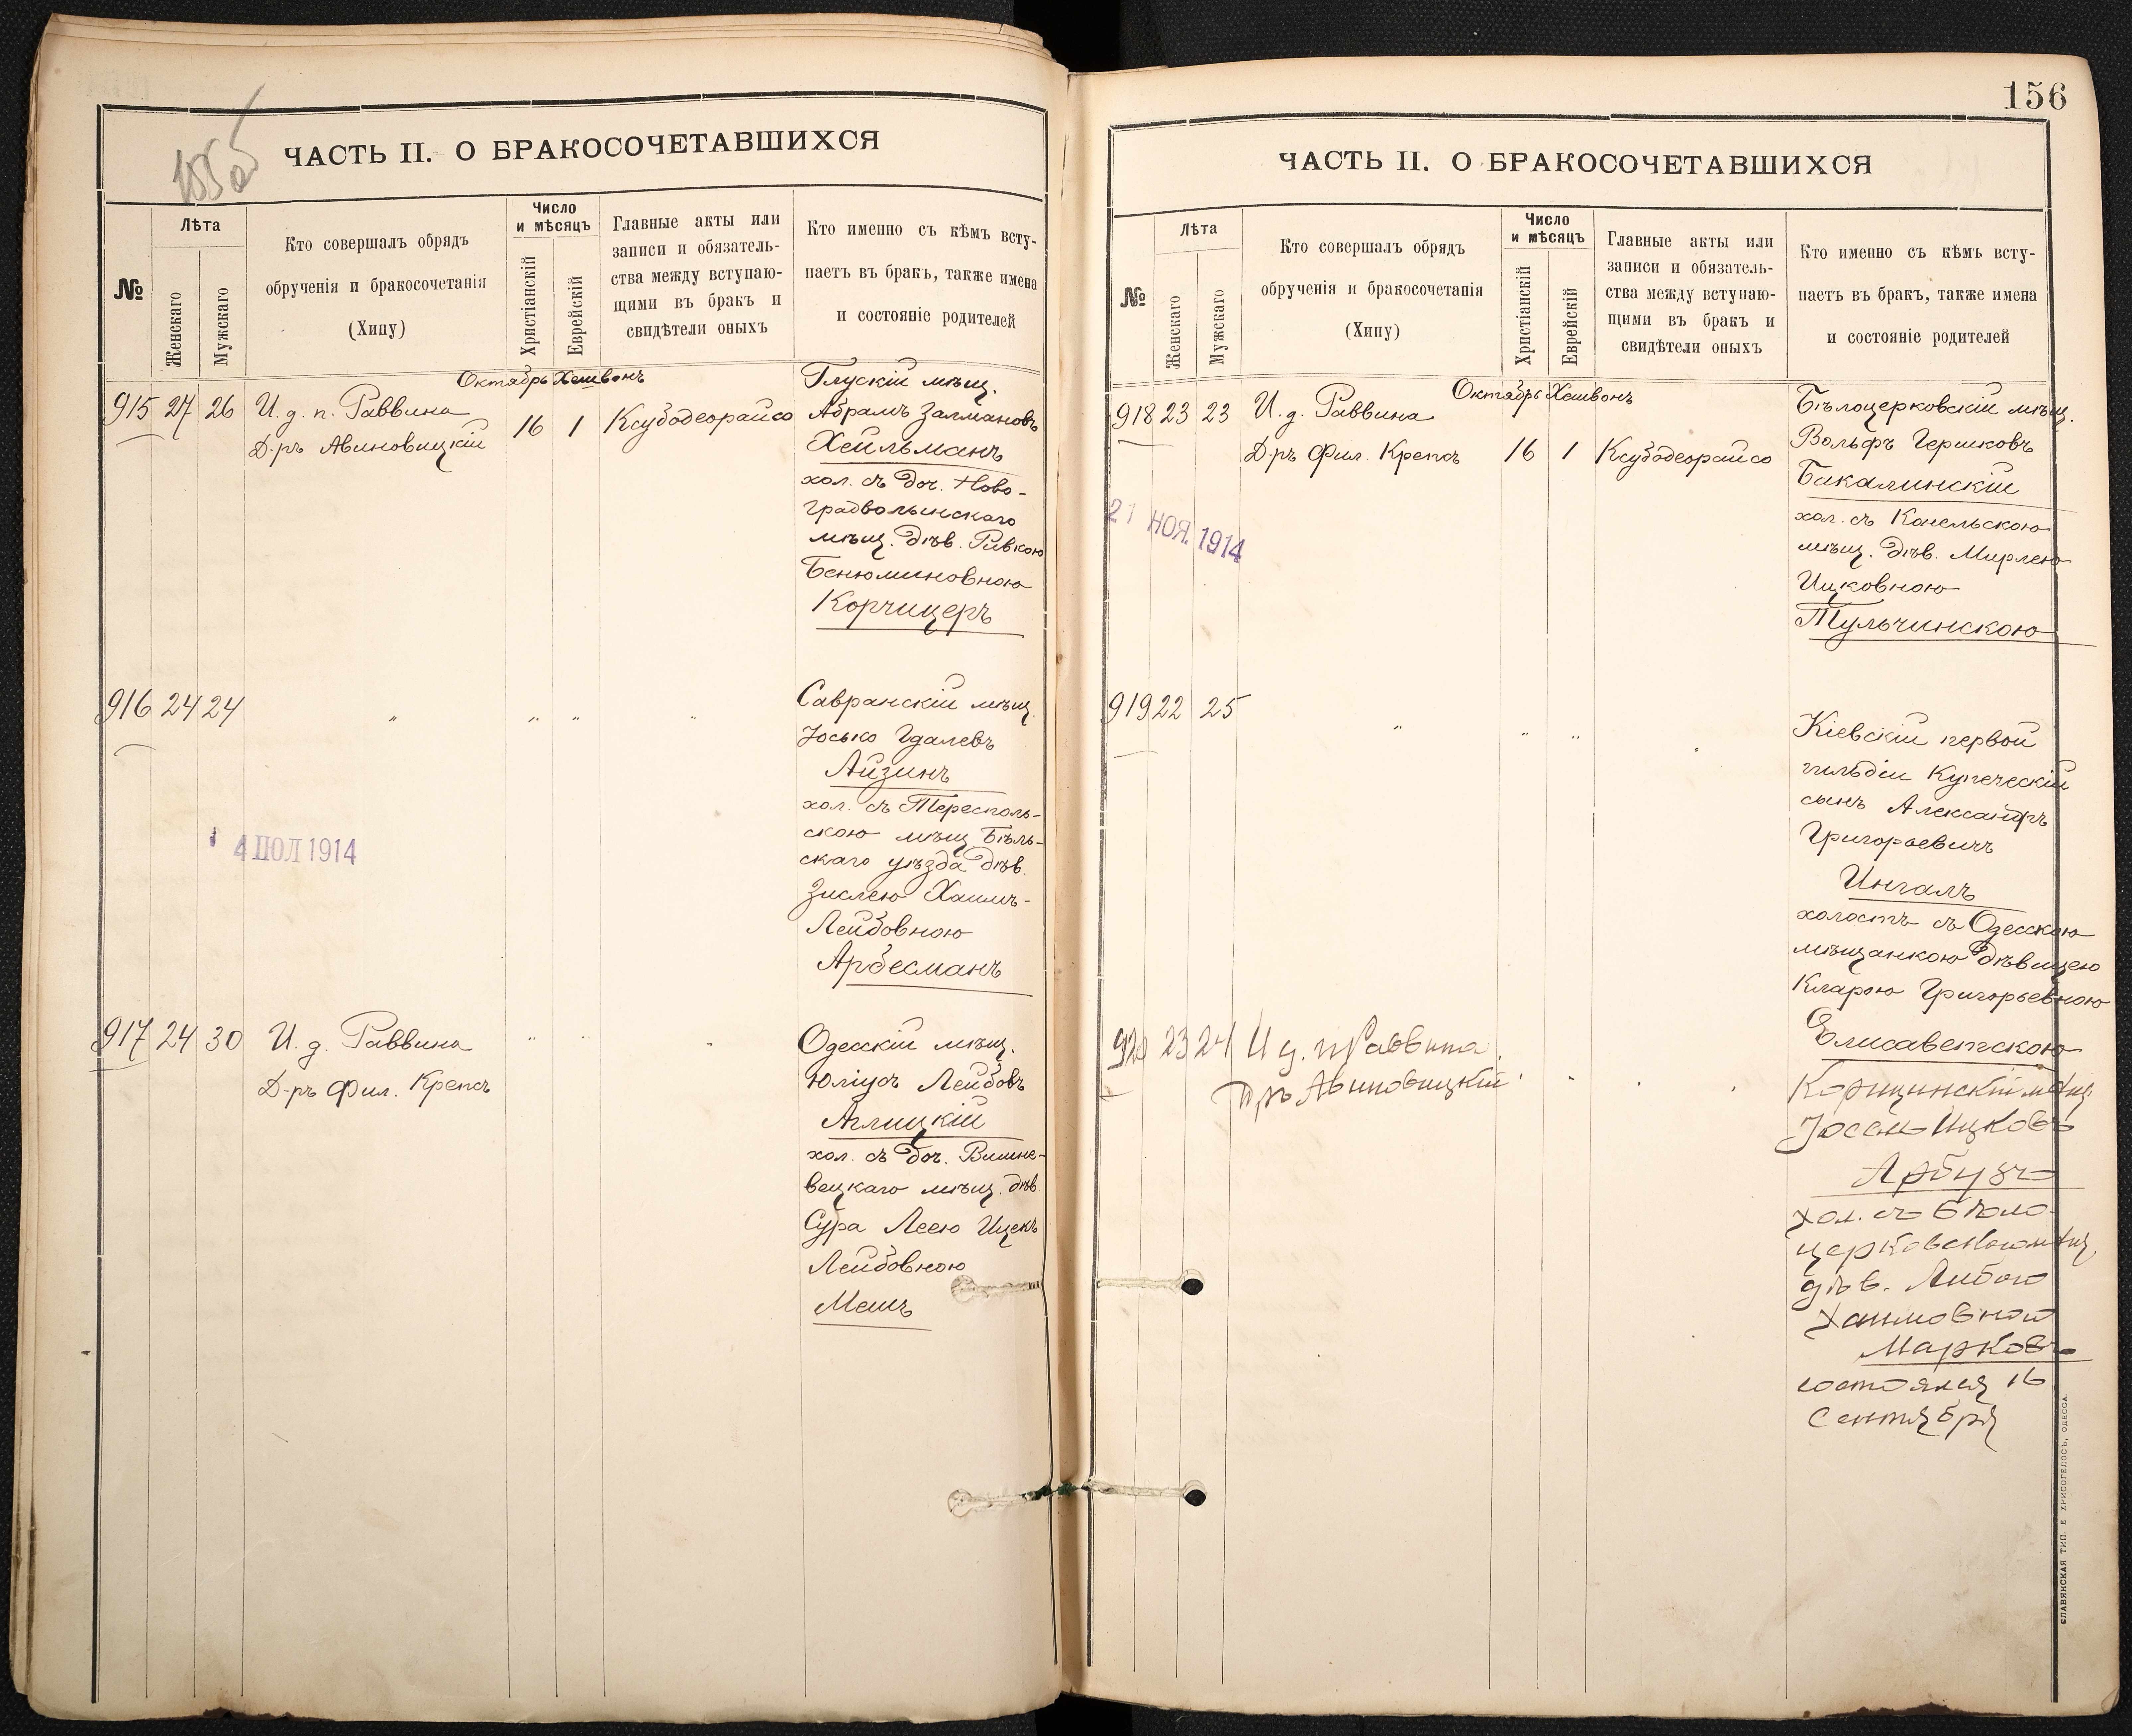 155об
ЧАСТЬ II. О БРАКОСОЧЕТАВШИХСЯ
№
Лѣта
Женскаго
Мужскаго
Кто совершалъ обрядъ
обрученія и бракосочетанія
(Хипу)
Число
и мѣсяцъ
Христіанскій
Еврейскій
Главные акты или
записи и обязатель-
ства между вступаю-
щими въ бракъ и
свидѣтели оныхъ
Кто именно съ кѣмъ всту-
паетъ въ бракъ, также имена
и состояніе родителей
Октябрь Хешвонъ
915 27 26 И. д. п. Раввина
Д-ръ Авиновицкій
16 1 Ксубодеорайсо
Глускій мѣщ.
Абрамъ Залмановъ
Хейльманъ
хол. съ доч. Ново-
градволынскаго
мѣщ. дѣв. Ривкою
Бенюминовною
Корчицеръ
916 24 24 " " " "
Савранскій мѣщ.
Іосько Гдалевъ
Айзинъ
хол. съ Тересполь-
скою мѣщ. Бѣль-
скаго уѣзда дѣв.
Зислею Хаимъ-
Лейбовною
Арбесманъ
4 ІЮЛ 1914
917 24 30 И. д. Раввина
Д-ръ Фил. Крепсъ
" " "
Одесскій мѣщ.
Юліусъ Лейбовъ
Аглицкій
хол. съ доч. Вишне-
вецкаго мѣщ. дѣв.
Сура Леею Ицекъ
Лейбовною
Мешъ
156
ЧАСТЬ II. О БРАКОСОЧЕТАВШИХСЯ
№
Лѣта
Женскаго
Мужскаго
Кто совершалъ обрядъ
обрученія и бракосочетанія
(Хипу)
Число
и мѣсяцъ
Христіанскій
Еврейскій
Главные акты или
записи и обязатель-
ства между вступаю-
щими въ бракъ и
свидѣтели оныхъ
Кто именно съ кѣмъ всту-
паетъ въ бракъ, также имена
и состояніе родителей
Октябрь Хешвонъ
918 23 23 И. д. Раввина
Д-ръ Фил. Крепсъ
16 1 Ксубодеорайсо
Бѣлоцерковскій мѣщ.
Вольфъ Гершковъ
Бакалинскій
хол. съ Конельскою
мѣщ. дѣв. Мирлею
Ицковною
Тульчинскою
21 НОЯ. 1914
919 22 25 " " " "
Кіевскій первой
гильдіи Купеческій
сынъ Александръ
Григорьевичъ
Ингалъ
холостъ съ Одесскою
мѣщанкою дѣвицею
Кларою Григорьевною
Елисаветскою
920 23 24 И д. п. Раввина
Д-ръ Авиновицкій
" " "
мѣщ.
Іосель Ицковъ
Арбузъ
хол. съ Бѣло-
церковскою мѣщ.
дѣв. Либою
Хаимовною
Марковъ
состоялся 16
Сентября
СЛАВЯНСКАЯ ТИП. Е ХРИСОГЕЛОСЪ, ОДЕССА.